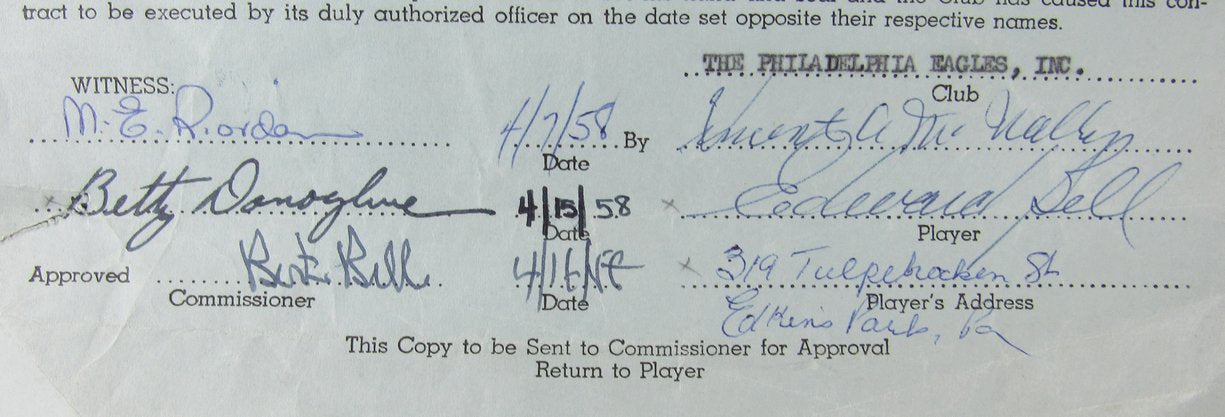 tract to be executed by its duly authorized officer on the date set opposite their respective names.
THE PHILADELPHIA EAGLES, INC.
WITNESS: Club
M. E. Riordan 4/7/58 By Vincent A McNally
Date
Betty Donoghue 4/15/58 Edward Bell
Date Player
Approved Bert Bell 319 Tulpehocken St
Commissioner Date Player's Address
Elkins Park, Pa
This Copy to be Sent to Commissioner for Approval
Return to Player